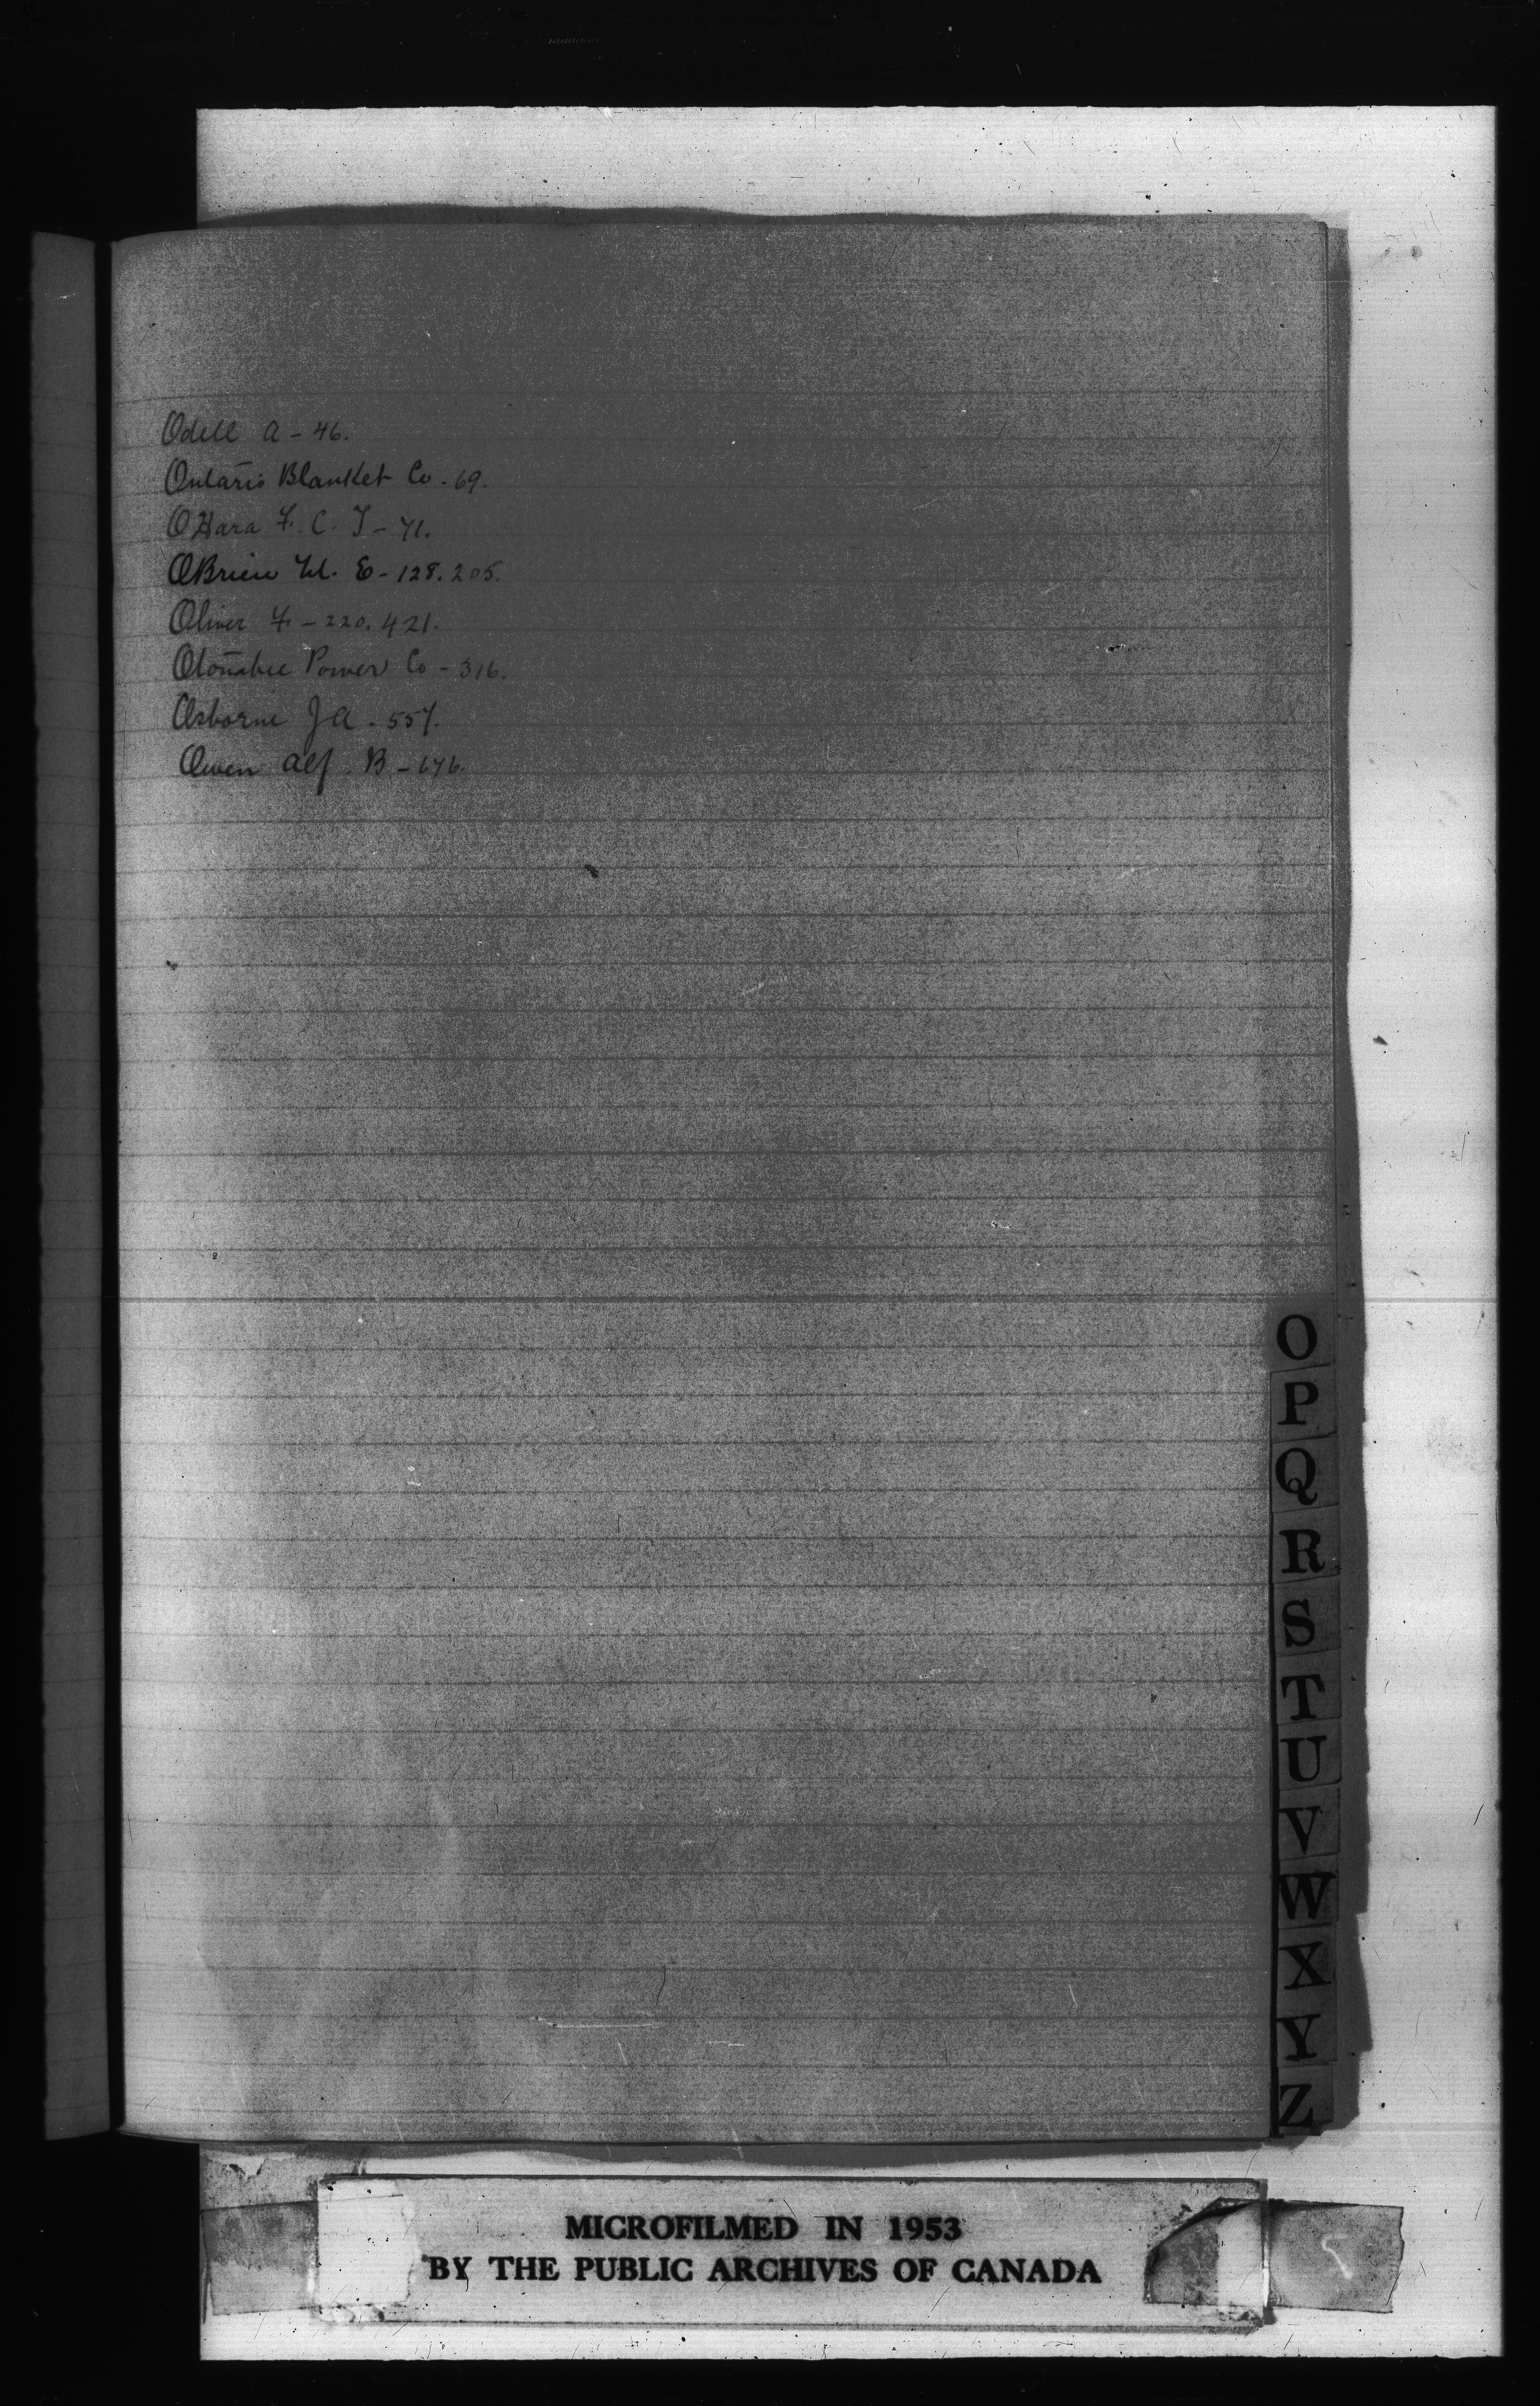 Odell A - 46.
Ontario Blanket Co - 69.
OHara F. C. T - 71.
OBrien W. E - 128. 205.
Oliver F - 220. 421.
Otonabee Power Co - 316.
Osborne J A - 557.
Owen Alf. B - 676.
O
P
Q
R
S
T
U
V
W
X
Y
Z
MICROFILMED IN 1953
BY THE PUBLIC ARCHIVES OF CANADA